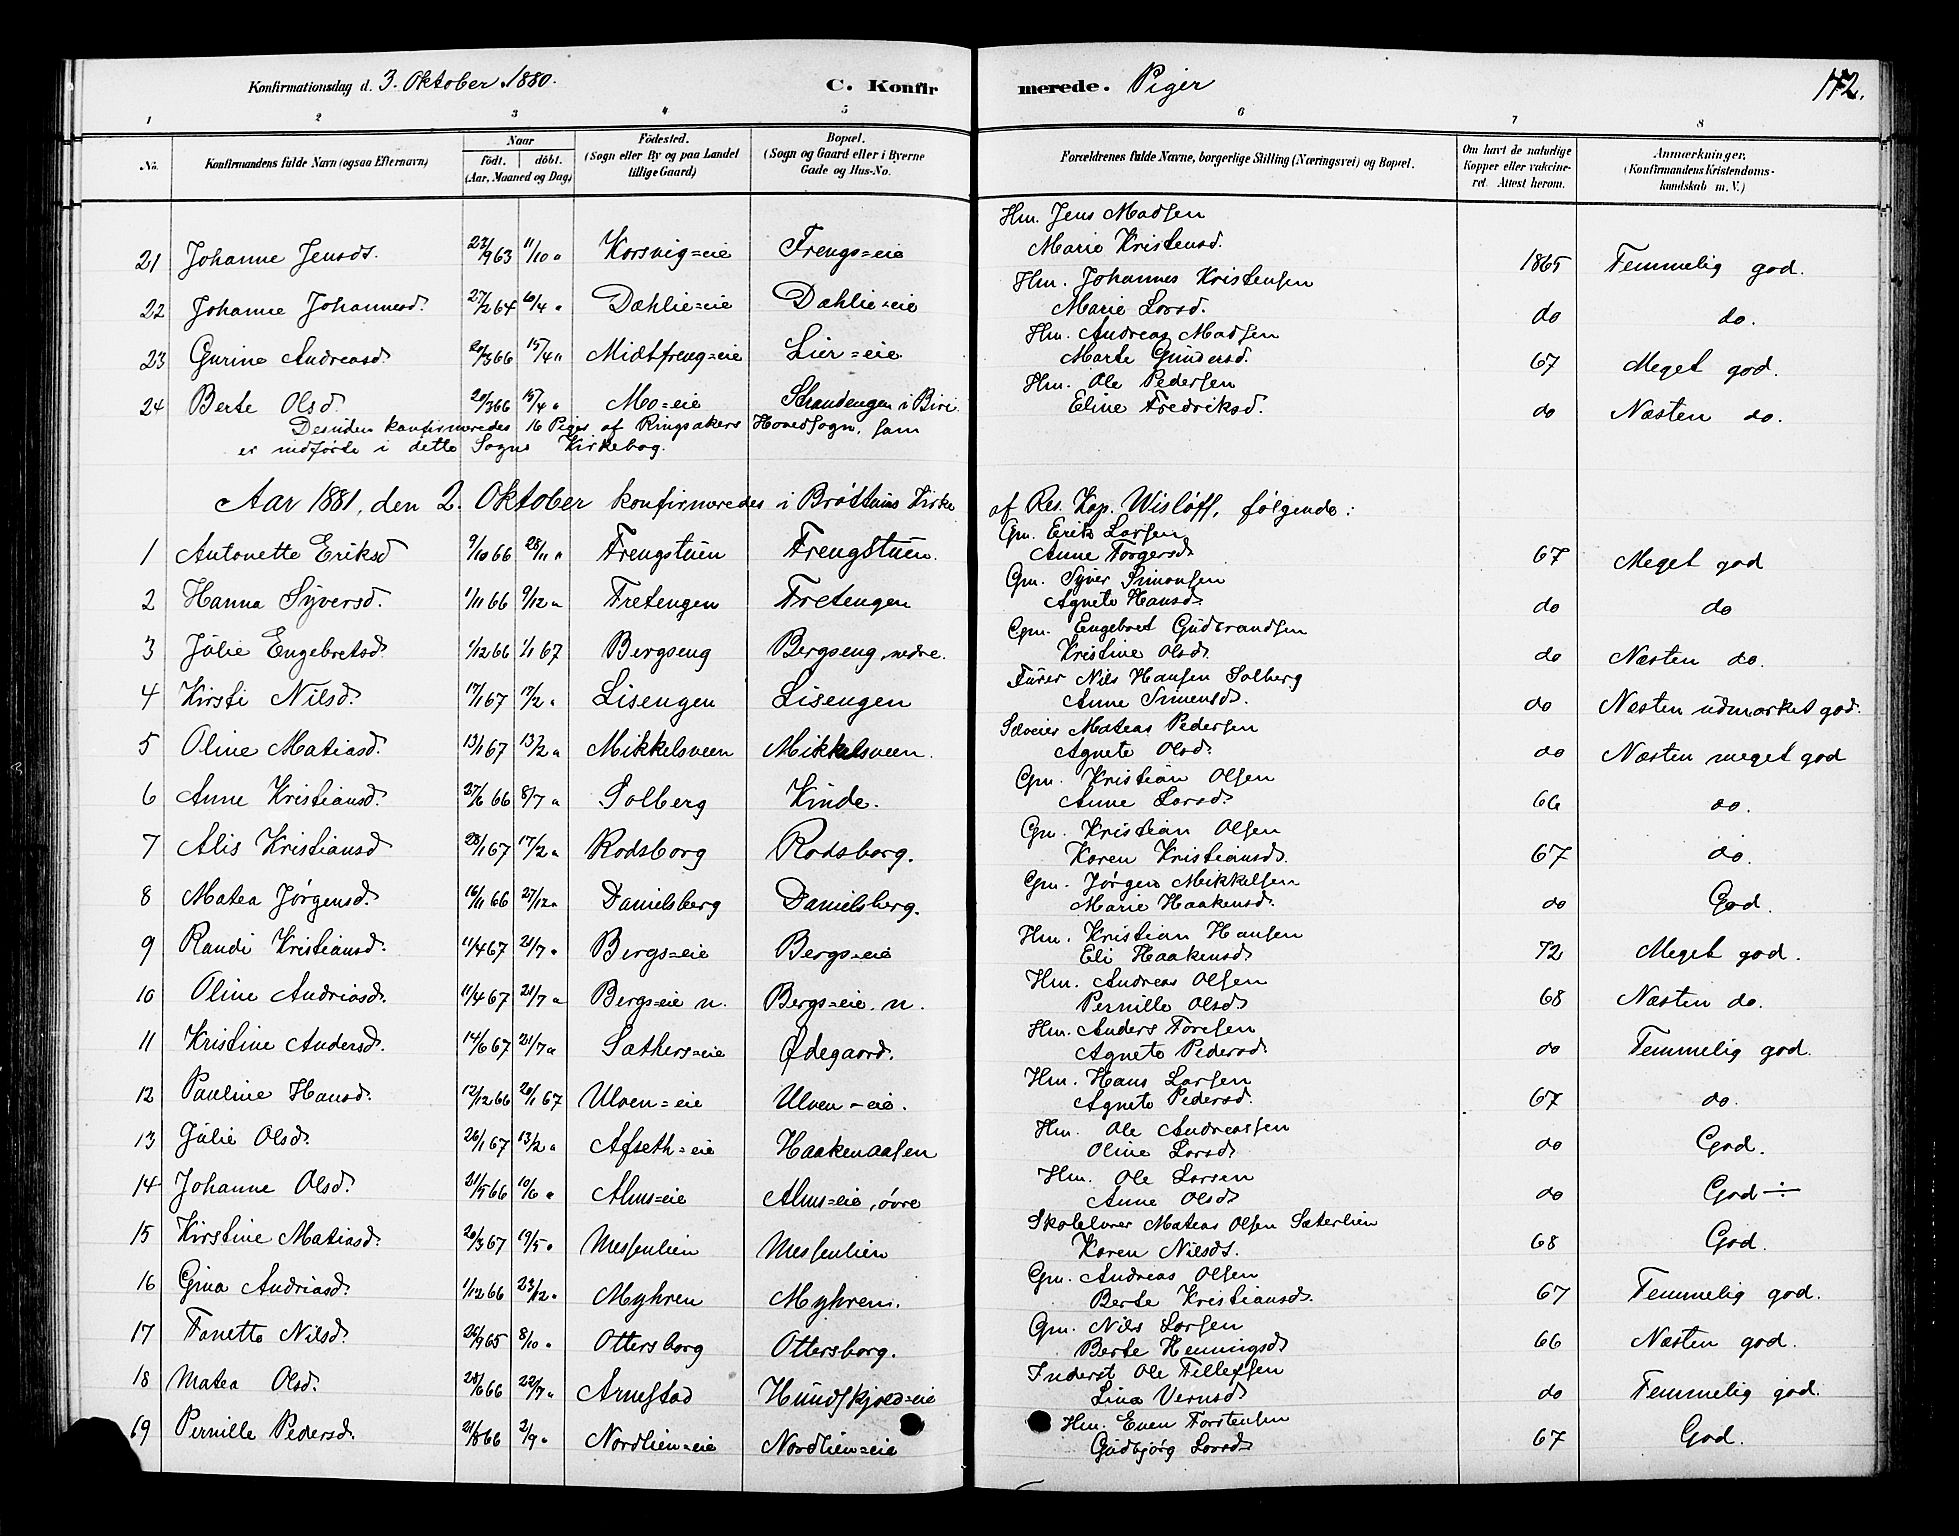 Konfirmationsdag d. 3. Oktober 1880. C. Konfirmerede. Piger 172.
1 2 3 4 5 6 7 8
No. Konfirmandens fulde Navn (ogsaa Efternavn) Naar født. døbt. (Aar, Maaned og Dag) Fødested. (Sogn eller By og paa Landet tillige Gaard) Bopæl. (Sogn og Gaard eller i Byerne Gade og Hus-No. Forældrenes fulde Navne, borgerlige Stilling (Næringsvei) og Bopæl. Om havt de naturlige Kopper eller vakcineret. Attest herom. Anmærkninger. (Konfirmandens Kristendomskundskab m. V.)
Hm. Jens Madsen
21 Johanne Jensd. 22/963 11/10 " Korsvig=eie Frengs=eie Marie Kristensd. 1865 Temmelig god.
Hm. Johannes Kristensen
22 Johanne Johannesd. 27/264 10/4 " Dæhlie=eie Dæhlie=eie Marie Larsd. do do.
Hm. Andreas Madsen
23 Gurine Andreasd. 20/366 15/4 " Midtfreng=eie Lier=eie Marte Gundersd. 67 Meget god.
Hm. Ole Pedersen
24 Berte Olsd. 20/366 15/4 " Mo=eie Strandengen i Biri Eline Fredriksd. do Næsten do.
Desuden konfirmeredes 16 Piger af Ringsakers Hovedsogn, som
er indførte i dette Sogns Kirkebog.
Aar 1881, den 2. Oktober konfirmeredes i Brøttums Kirke af Res. Kap. Wisløff, følgende:
Gm. Erik Larsen
1 Antonette Eriksd 9/1066 28/11 " Frengstuen Frengstuen. Anne Torgersd. 67 Meget god
Gm. Syver Simonsen
2 Hanna Syversd. 1/1166 9/12 " Fretengen Fretengen Agnete Hansd. do do
Gm. Engebret Gudbrandsen
3 Julie Engebretsd. 1/1266 1/167 Bergseng Bergseng, nedre. Kristine Olsd. do Næsten do.
Furer Nils Hansen Solberg
4 Kirsti Nilsd. 17/167 17/2 " Lisengen Lisengen Anne Simensd. do Næsten udmærket god.
Selveier Mateas Pedersen
5 Oline Matiasd. 13/167 13/2 " Mikkelsveen Mikkelsveen. Agnete Olsd. do Næsten meget god
Gm. Kristian Olsen
6 Anne Kristiansd. 27/666 8/7 " Solberg Kinde. Anne Larsd. 66 do.
Gm. Kristian Olsen
7 Alis Kristiansd 28/167 17/2 " Rodsborg Rodsborg. Karen Kristiansd. 67 do.
Gm. Jørgen Mikkelsen
8 Matea Jørgensd. 16/1166 27/12 " Danielsberg Danielsberg. Marie Haakensd. do God.
Hm. Kristian Hansen
9 Randi Kristiansd. 11/467 21/7 " Bergs=eie Bergs=eie Eli Haakensd. 72 Meget god.
Hm. Andreas Olsen
10 Oline Andriasd. 11/467 21/7 " Bergs=eie n. Bergs=eie. n. Pernille Olsd. 68 Næsten do.
Hm. Anders Toresen
11 Kristine Andersd. 14/667 21/7 " Sæthers=eie Ødegaard. Agnete Pedersd. do Temmelig god.
Hm. Hans Larsen
12 Pauline Hansd. 12/1266 20/167 Ulven=eie Ulven=eie. Agnete Pedersd. 67 do.
Hm. Ole Andreassen
13 Julie Olsd. 26/167 13/2 " Afseth=eie Haakenaasen Oline Larsd. do God.
Hm. Ole Larsen
14 Johanne Olsd. 21/566 10/6 " Alms=eie Alms=eie, øvre Anne Olsd. do God ÷
Skolelærer Mateas Olsen Sæterlien
15 Kirstine Matiasd. 20/367 19/5 " Messenlien Messenlien Karen Nilsd. 68 God.
Gm. Andreas Olsen
16 Gina Andriasd. 1/1266 23/12 " Myhren Myhren. Berte Kristiansd. 67 Temmelig god.
Gm. Nils Larsen
17 Tonette Nilsd. 26/965 8/10 " Ottersborg Ottersborg. Berte Henningsd. 66 Næsten god.
Inderst Ole Tillefsen
18 Matea Olsd. 28/666 22/7 " Arnestad Hundskjold=eie Lina Vernsd. do Temmelig god.
Hm. Even Torstensen
69 Pernille Pedersd. 21/866 2/9 " Nordlien=eie Nordlien=eie Gudbjørg Larsd. 67 God.